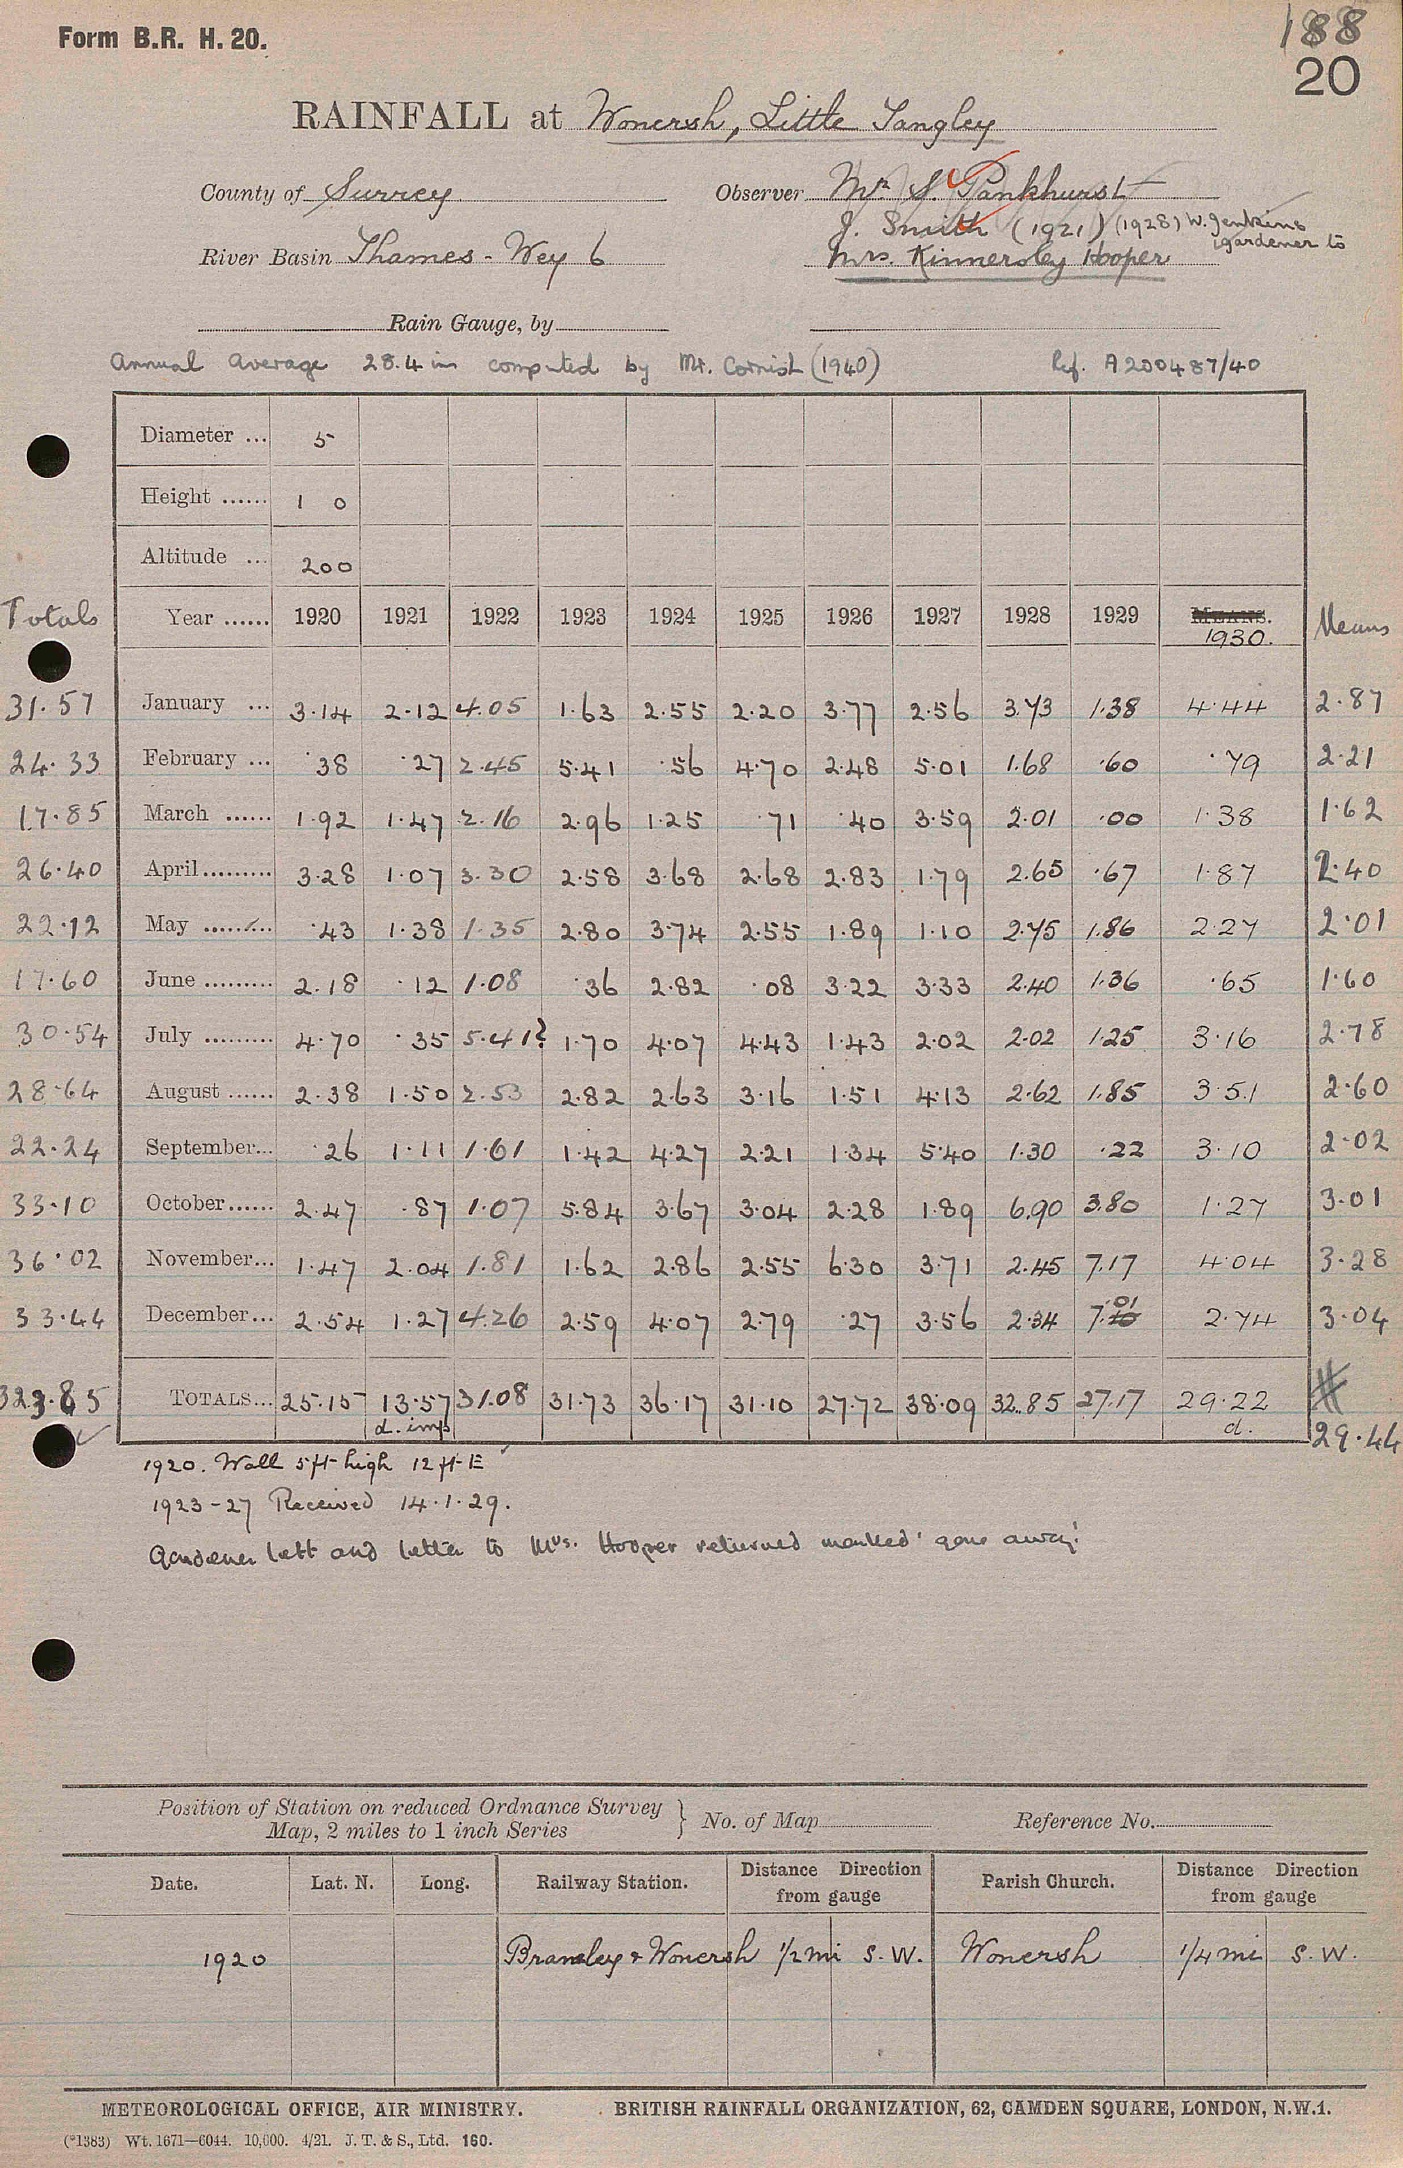 Form B.R. H. 20.
188
20
RAINFALL at Wonersh, Little Tangley
County of Surrey
Observer Mr. S. Pankhurst
J. Smith (1921) (1928) W. Jenkins
gardener to
River Basin Thames - Wey 6
Mrs. Kinnersley Hooper
Rain Gauge, by
Annual Average 28.4 in computed by Mr. Cornish (1940) Ref. A200487/40
Diameter ... 5
Height ...... 1 0
Altitude ... 200
Totals Year ...... 1920 1921 1922 1923 1924 1925 1926 1927 1928 1929 MEANS. 1930. Means
31.57 January ... 3.14 2.12 4.05 1.63 2.55 2.20 3.77 2.56 3.73 1.38 4.44 2.87
24.33 February ... .38 .27 2.45 5.41 .56 4.70 2.48 5.01 1.68 .60 .79 2.21
17.85 March ...... 1.92 1.47 2.16 2.96 1.25 .71 .40 3.59 2.01 .00 1.38 1.62
26.40 April......... 3.28 1.07 3.30 2.58 3.68 2.68 2.83 1.79 2.65 .67 1.87 2.40
22.12 May ......... .43 1.38 1.35 2.80 3.74 2.55 1.89 1.10 2.75 1.86 2.27 2.01
17.60 June ......... 2.18 .12 1.08 .36 2.82 .08 3.22 3.33 2.40 1.36 .65 1.60
30.54 July ......... 4.70 .35 5.41? 1.70 4.07 4.43 1.43 2.02 2.02 1.25 3.16 2.78
28.64 August ...... 2.38 1.50 2.53 2.82 2.63 3.16 1.51 4.13 2.62 1.85 3.51 2.60
22.24 September... .26 1.11 1.61 1.42 4.27 2.21 1.34 5.40 1.30 .22 3.10 2.02
33.10 October...... 2.47 .87 1.07 5.84 3.67 3.04 2.28 1.89 6.90 3.80 1.27 3.01
36.02 November... 1.47 2.04 1.81 1.62 2.86 2.55 6.30 3.71 2.45 7.17 4.04 3.28
33.44 December... 2.54 1.27 4.26 2.59 4.07 2.79 .27 3.56 2.34 7.01 2.74 3.04
323.85 TOTALS... 25.15 13.57 31.08 31.73 36.17 31.10 27.72 38.09 32.85 27.17 29.22
d. imp d. 29.44
1920. Wall 5ft high 12 ft E
1923-27 Received 14.1.29.
Gardener left and letter to Mrs. Hooper returned marked 'gone away'
Position of Station on reduced Ordnance Survey
Map, 2 miles to 1 inch Series } No. of Map Reference No.
Date. Lat. N. Long. Railway Station. Distance Direction from gauge Parish Church. Distance Direction from gauge
1920 Bramley & Wonersh 1/2 mi S.W. Wonersh 1/4 mi S.W.
METEOROLOGICAL OFFICE, AIR MINISTRY. BRITISH RAINFALL ORGANIZATION, 62, CAMDEN SQUARE, LONDON, N.W.1.
(*1383) Wt. 1671—6044. 10,000. 4/21. J. T. & S., Ltd. 160.